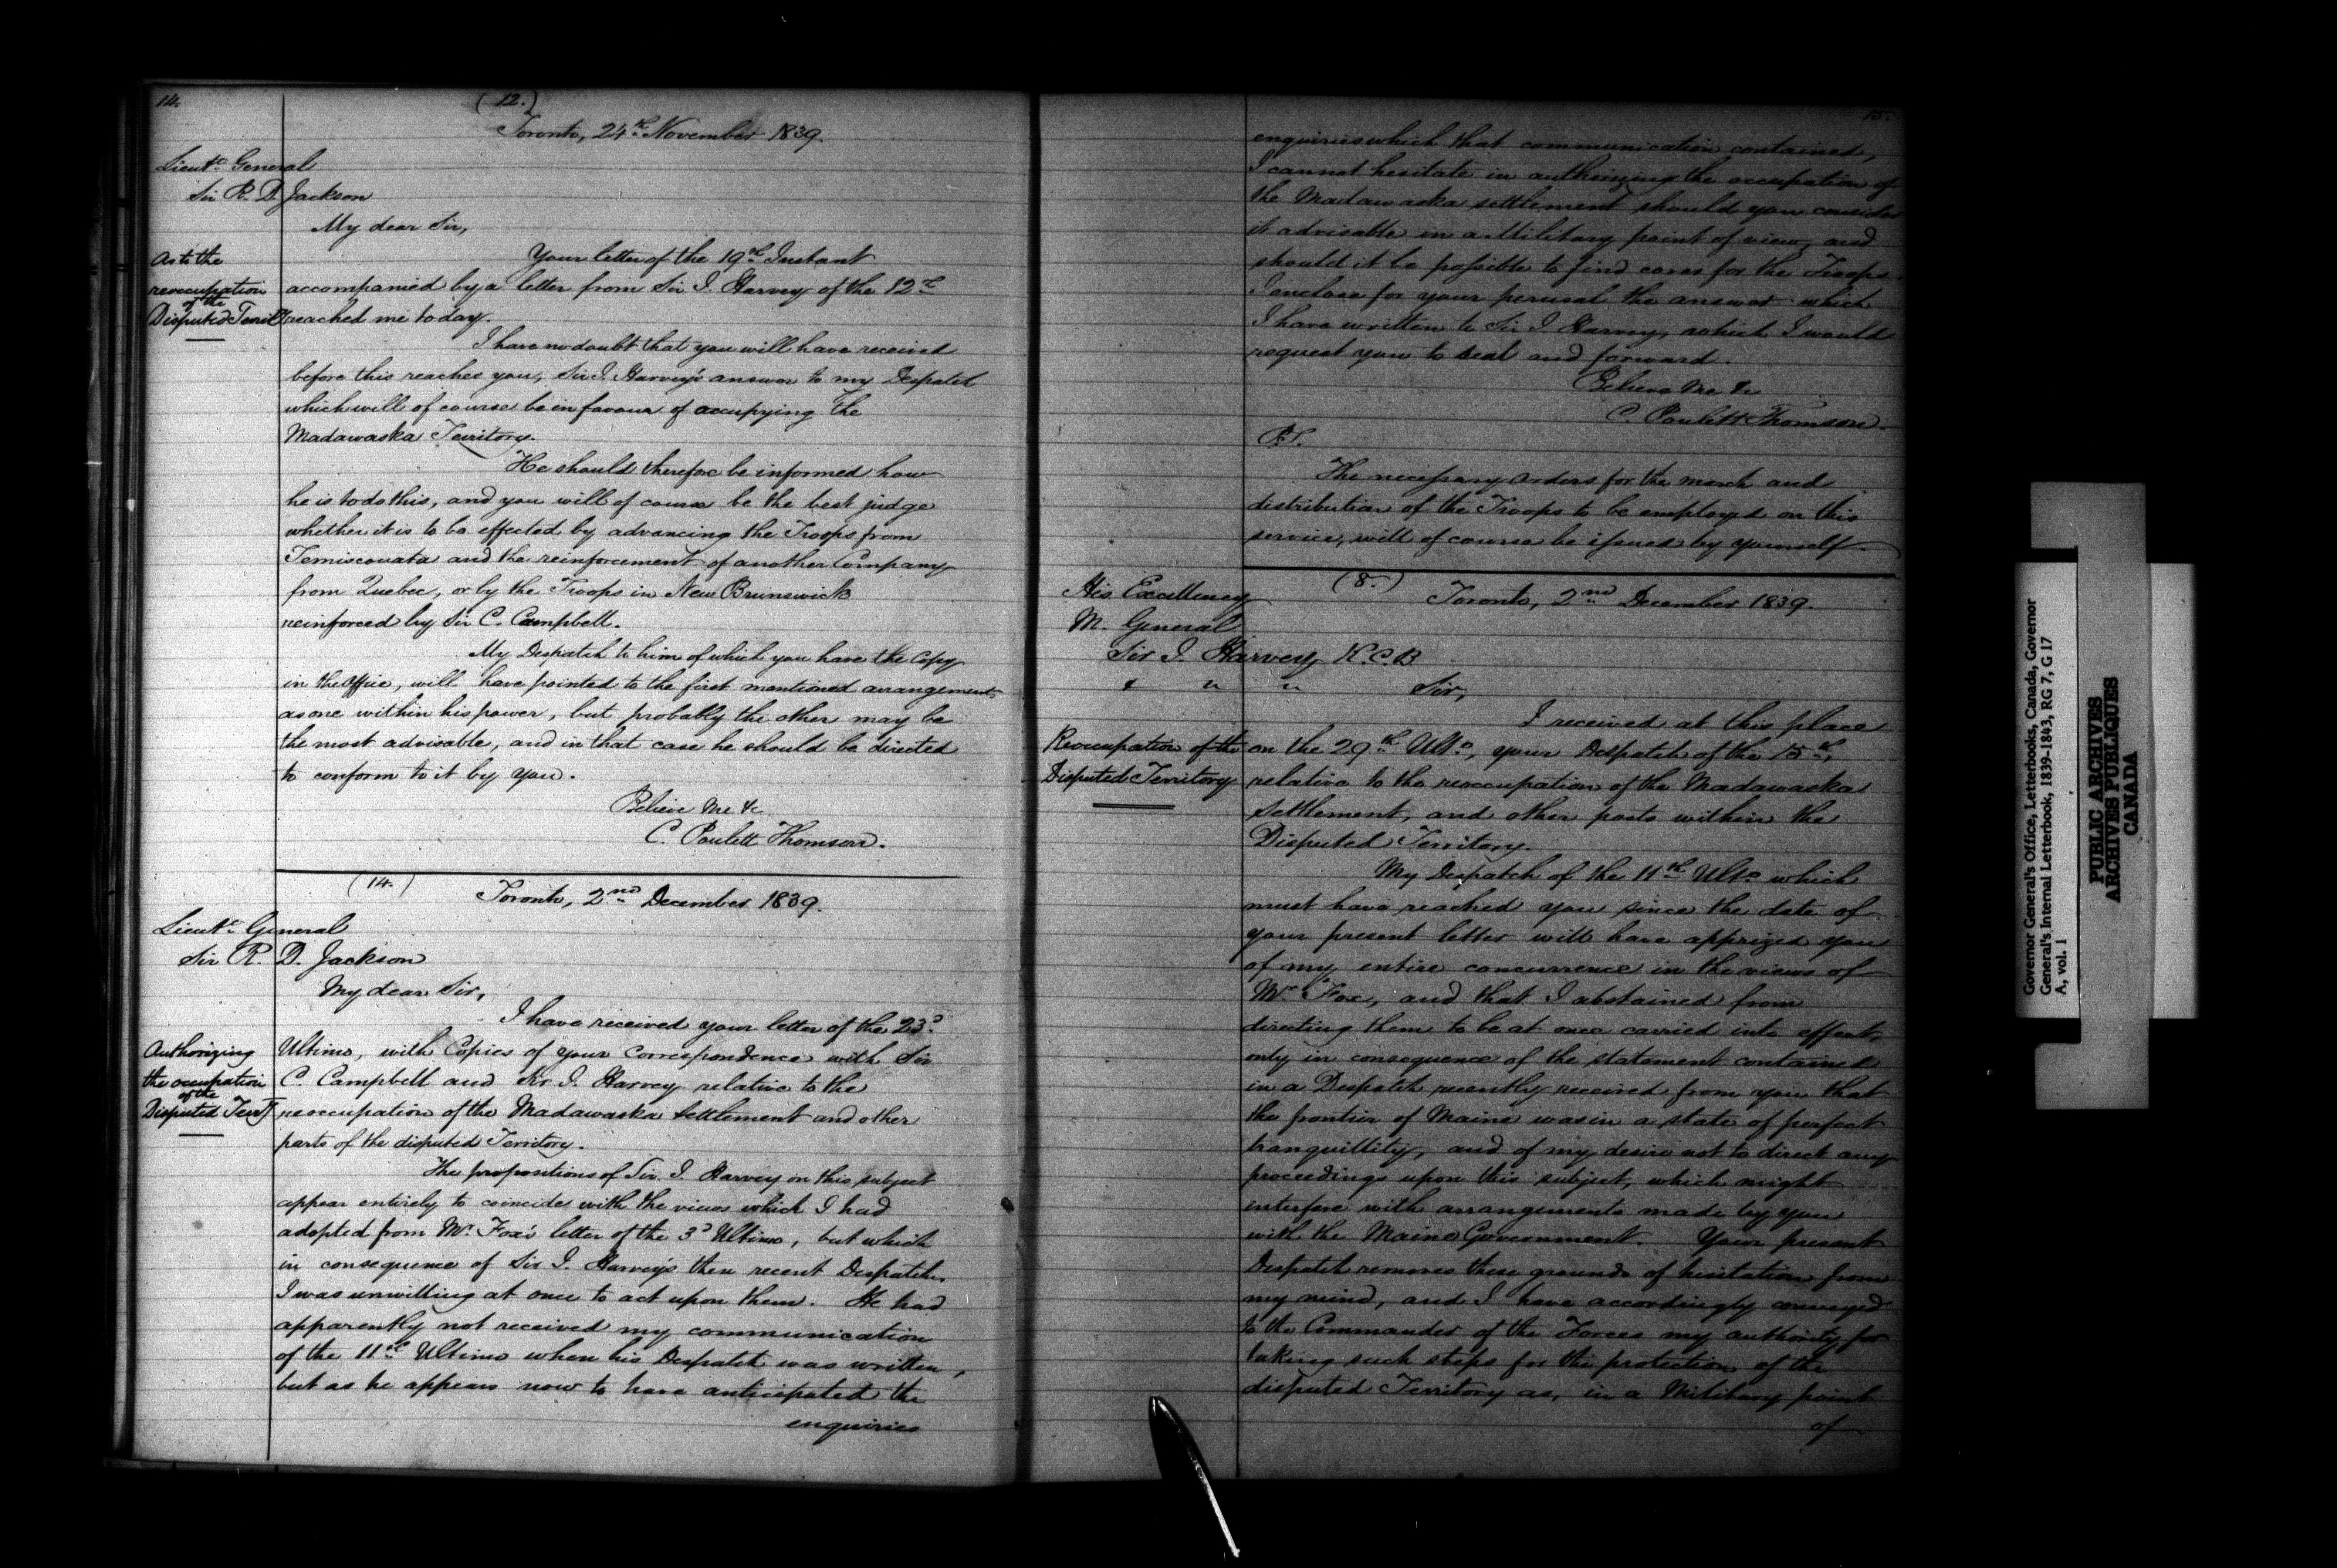 14.
(12.)
Toronto, 24th November 1839.
Lieut. General
Sir R. D. Jackson
My dear Sir,
As to the
reoccupation
of the
Disputed Territy
Your letter of the 19th Instant
accompanied by a letter from Sir J. Harvey of the 12th
reached me today.
I have no doubt that you will have received
before this reaches you, Sir J. Harvey's answer to my Despatch
which will of course be in favour of occupying the
Madawaska Territory.
He should therefore be informed how
he is to do this, and you will of course be the best judge
whether it is to be effected by advancing the Troops from
Temiscouata and the reinforcement of another Company
from Quebec, or by the Troops in New Brunswick
reinforced by Sir C. Campbell.
My Despatch to him of which you have the Copy
in the Office, will have pointed to the first mentioned arrangement
as one within his power, but probably the other may be
the most advisable, and in that case he should be directed
to conform to it by you.
Believe me &c
C. Poulett Thomson.
(14.)
Toronto, 2nd December 1839.
Lieut. General
Sir R. D. Jackson
My dear Sir,
Authorizing
the occupation
of the
Disputed Terry
I have received your letter of the 23d
Ultimo, with Copies of your Correspondence with Sir
C. Campbell and Sir J. Harvey relative to the
reoccupation of the Madawaska Settlement and other
parts of the disputed Territory.
The propositions of Sir J. Harvey on this subject
appear entirely to coincide with the views which I had
adopted from Mr. Fox's letter of the 3d Ultimo, but which
in consequence of Sir J. Harvey's then recent Despatches
I was unwilling at once to act upon them. He had
apparently not received my communication
of the 11th Ultimo when his Despatch was written,
but as he appears now to have anticipated the
enquiries
15.
enquiries which that communication contained,
I cannot hesitate in authorizing the occupation of
the Madawaska settlement should you consider
it advisable in a Military point of view, and
should it be possible to find cover for the Troops.
I enclose for your perusal the answer which
I have written to Sir J. Harvey, which I would
request you to seal and forward.
Believe me &c
C. Poulett Thomson.
P.S.
The necessary orders for the march and
distribution of the Troops to be employed on this
service, will of course be issued by yourself.
(8.)
Toronto, 2nd December 1839.
His Excellency
M. General
Sir J. Harvey K.C.B
Sir,
Reoccupation of the
Disputed Territory
I received at this place
on the 29th Ulto, your Despatch of the 15th,
relative to the reoccupation of the Madawaska
Settlement, and other posts within the
Disputed Territory.
My Despatch of the 11th Ulto which
must have reached you since the date of
your present letter will have apprized you
of my entire concurrence in the views of
Mr. Fox, and that I abstained from
directing them to be at once carried into effect,
only in consequence of the statement contained
in a Despatch recently received from you that
the frontier of Maine was in a state of perfect
tranquillity, and of my desire not to direct any
proceedings upon this subject, which might
interfere with arrangements made by you
with the Maine Government. Your present
Despatch removes these grounds of hesitation from
my mind, and I have accordingly conveyed
to the Commander of the Forces my authority for
taking such steps for the protection of the
disputed Territory as, in a Military point
of
Governor General's Office, Letterbooks, Canada, Governor
General's Internal Letterbook, 1839-1843, RG 7, G 17
A, vol. 1
PUBLIC ARCHIVES
ARCHIVES PUBLIQUES
CANADA